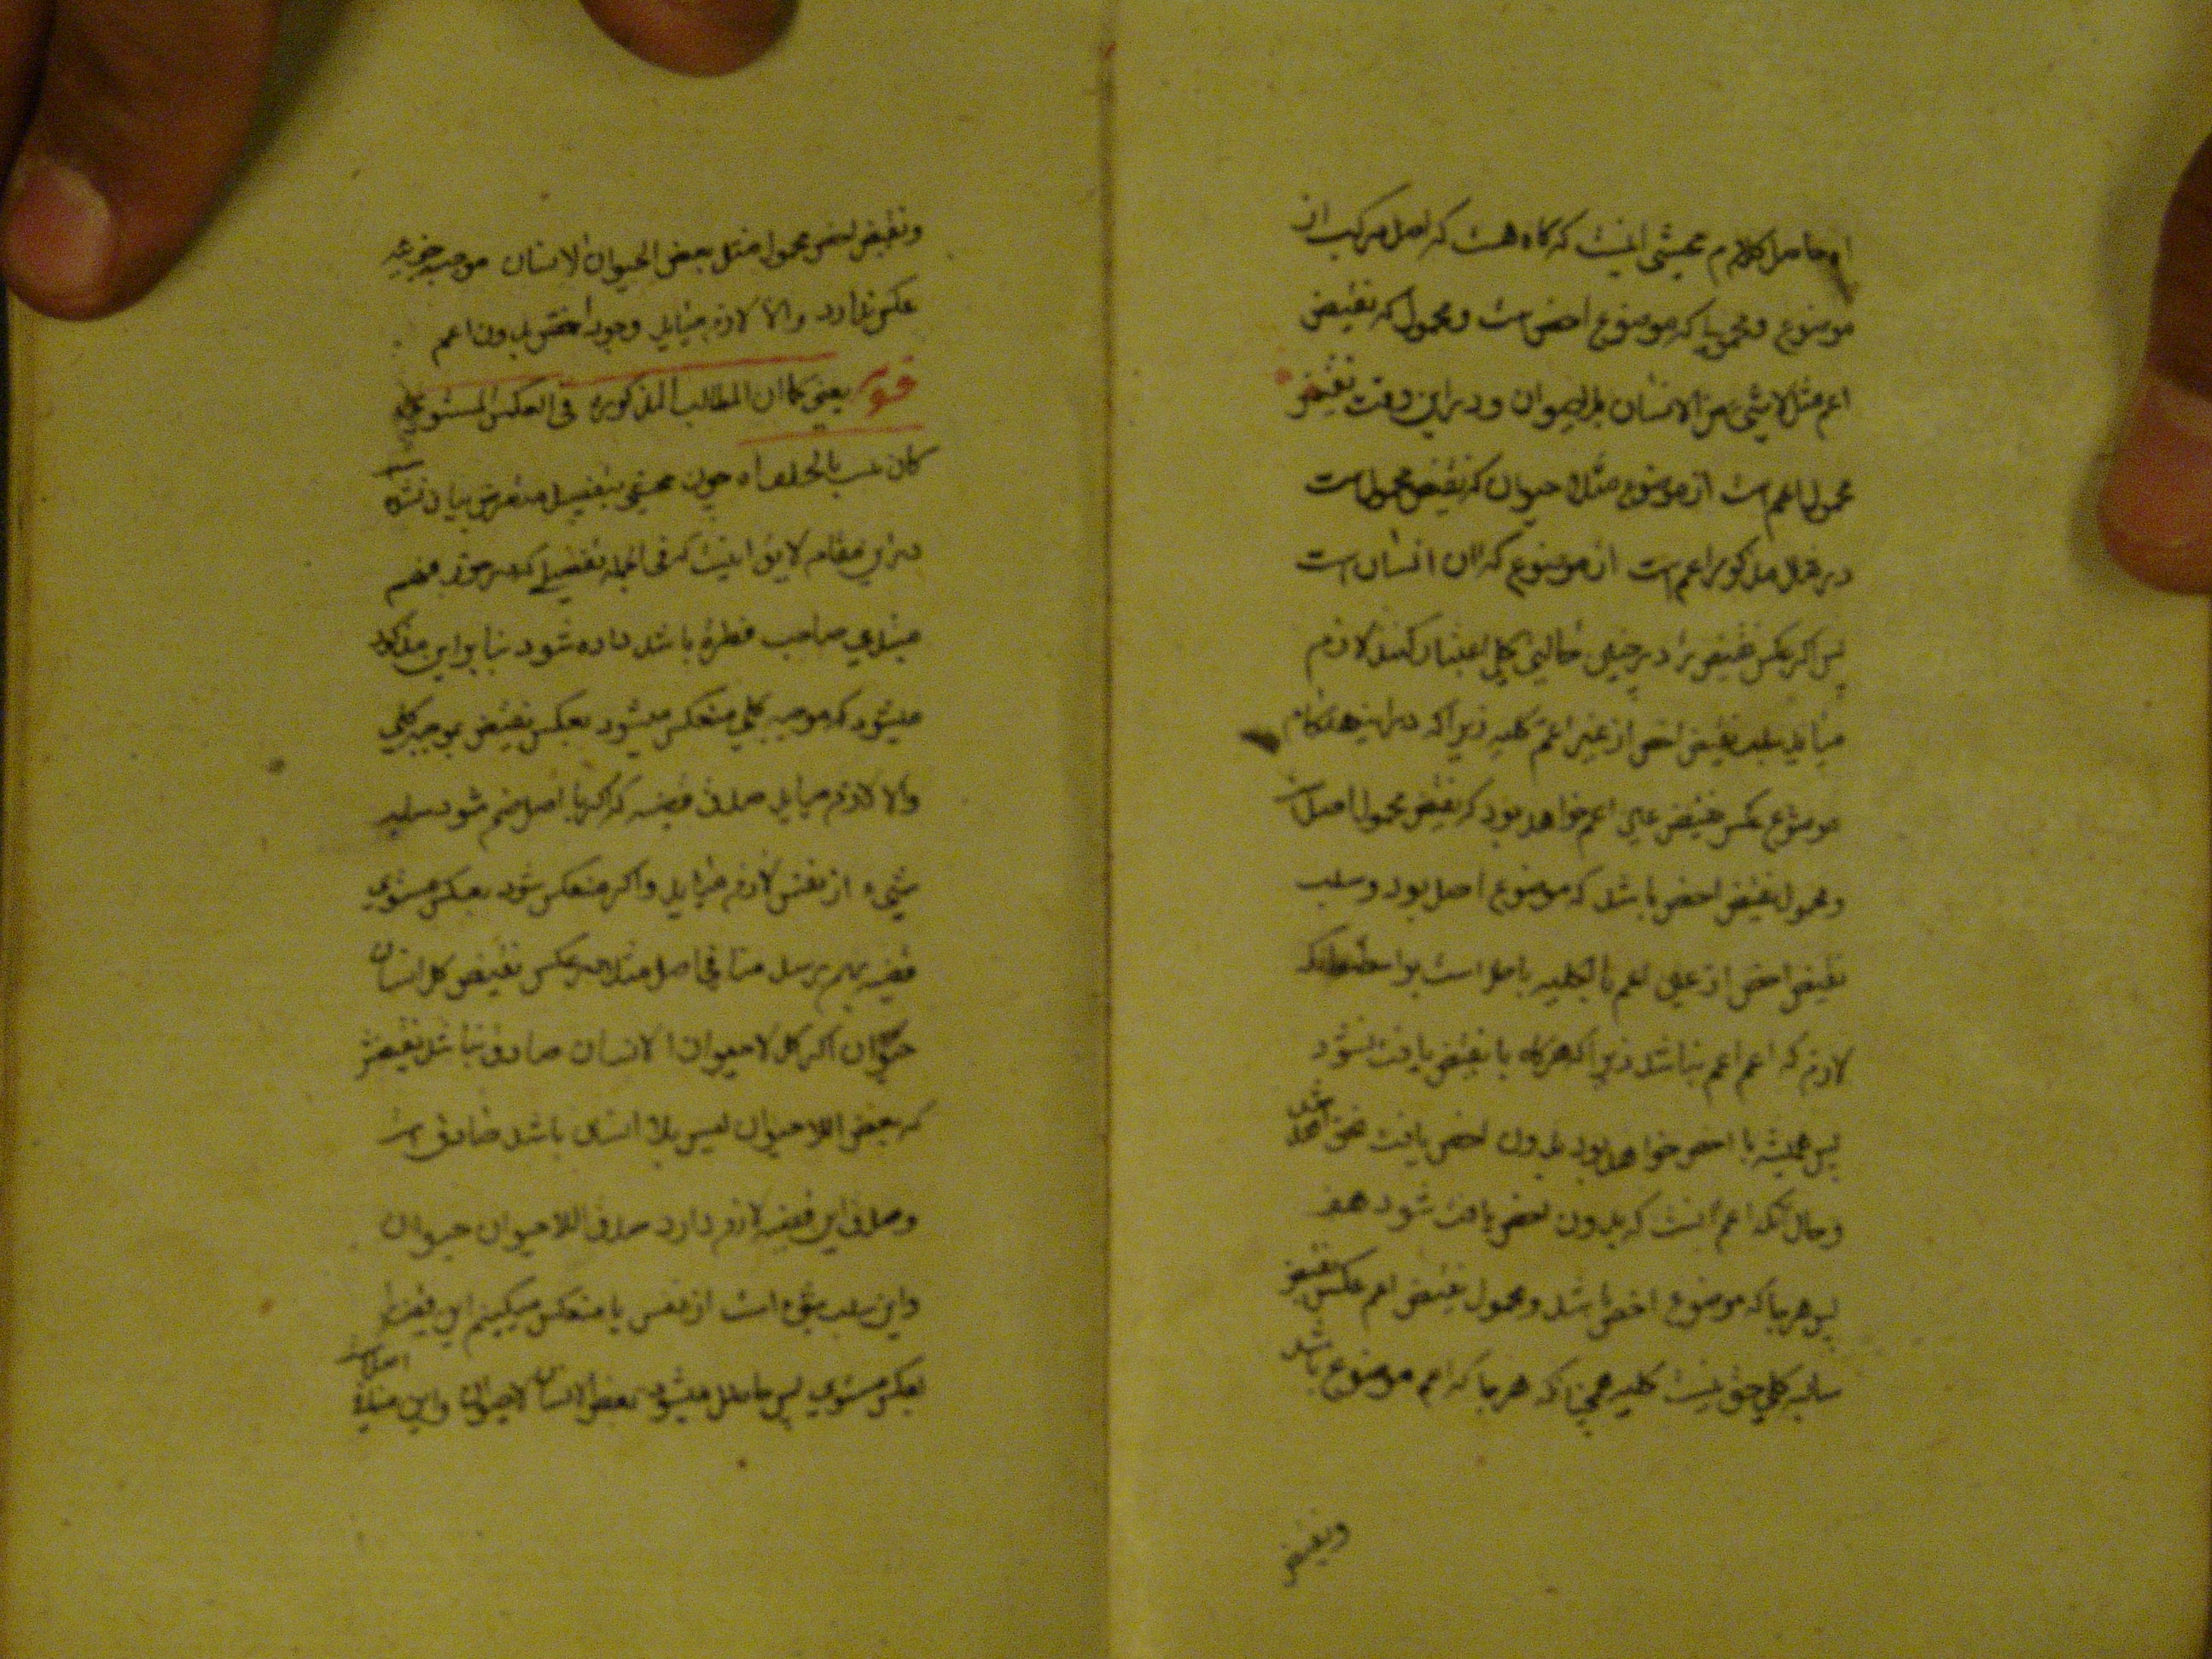 اه حاصل کلام محشی اینست که کاه هست که اصل مرکب از
موضوع و محمولیا که موضوع اخص است و محمول که نقیض
اعم مثل لاشی من الانسان بلاحیوان و درین وقت نقیض
محمول اعم است از موضوع مثلا حیوان که نقیض محمول است
در مثل مذکور اعم است از موضوع که ان انسان است
پس اکر عکس نقیض را در چنین حالتی کلی اعتبار کنند لازم
میاید سلب نقیض اخص از عین اعم کلیه زیرا که در اینهنکام
موضوع عکس نقیض عین اعم خواهد بود که نقیض محمول اصل است
و محمول نقیض اخص باشد که موضوع اصل بود و سلب
نقیض اخص از عین اعم بالکلیه باطل است بواسطه انکه
لازم که اعم اعم نباشد زیرا که هرکاه با نقیض یافت نشود
پس همیشه با اخص خواهد بود بدون اخص یافت نخواهد شد
و حال آنکه اعم آنست که بدون اخص یافت شود هف
پس هرجا که موضوع اخص باشد و محمول نقیض اعم عکس نقیض
سالبه کلی حق نیست کلیه همچنانکه هرجا که اعم موضوع باشد
ونقیض
ونقیض اخص محمول مثل بعض الحیوان لا انسان موجبه جزئیه
عکس ندارد والا لازم میاید وجود اخص بدون اعم
قوله یعنی کما ان المطالب المذکورة فی العکس المستوی
کان یثبت بالخلف اه چون محشی بتفصیل متعرض بیان نشده
در این مقام لایق اینست که فی الجمله تفصیلی که در خور فهم
مبتدی صاحب فطرة باشد داده شود بنابراین مذکور
میشود که موجبه کلی منعکس میشود بعکس نقیض بموجبه کلی
والا لازم میاید صدق قضیه که اکر با اصل ضم شود سلب
شیء از نفس لازم میاید و اکر منعکس شود بعکس مستوی
قضیه بهم رسد منافی اصل مثلا در عکس نقیض کل انسان
حیوان اکر کل لاحیوان لا انسان صادق نباشد نقیضش
که بعض اللاحیوان لیس بلا انسان باشد صادق است
و صدق این قضیه لازم دارد صدق اللاحیوان حیوان
و این سلب شیء است از نفس یا منعکس میکنیم این قضیه را
بعکس مستوی پس حاصل میشود بعض الانسان لاحیوان و این منافی اصل است